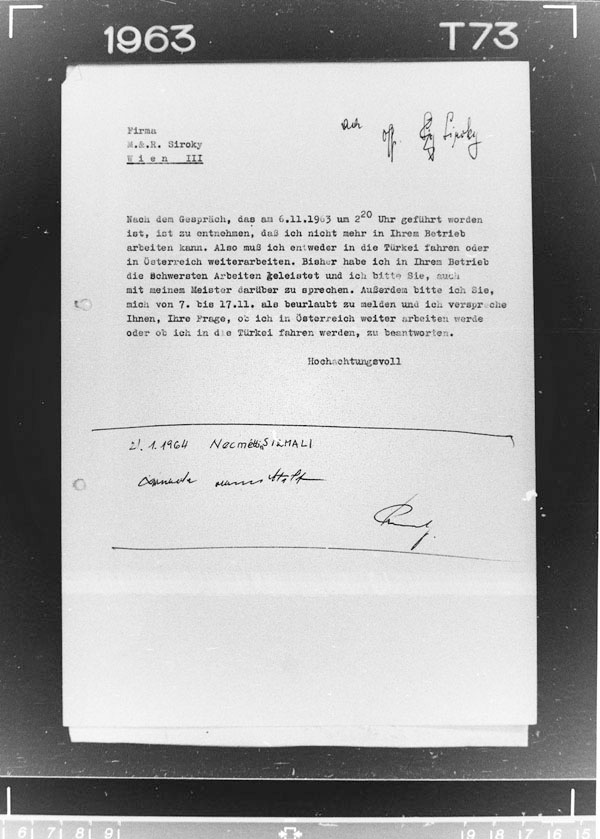 1963 T73
Siroky
Firma
M.&.R. Siroky
Wien III
Nach dem Gespräch, das am 6.11.1963 um 2²⁰ Uhr geführt worden
ist, ist zu entnehmen, daß ich nicht mehr in Ihrem Betrieb
arbeiten kann. Also muß ich entweder in die Türkei fahren oder
in Österreich weiterarbeiten. Bisher habe ich in Ihrem Betrieb
die Schwersten Arbeiten geleistet und ich bitte Sie, auch
mit meinem Meister darüber zu sprechen. Außerdem bitte ich Sie,
mich von 7. bis 17.11. als beurlaubt zu melden und ich verspreche
Ihnen, Ihre Frage, ob ich in Österreich weiter arbeiten werde
oder ob ich in die Türkei fahren werden, zu beantworten.
Hochachtungsvoll
1.1964
6 7 8 9 19 18 17 16 15